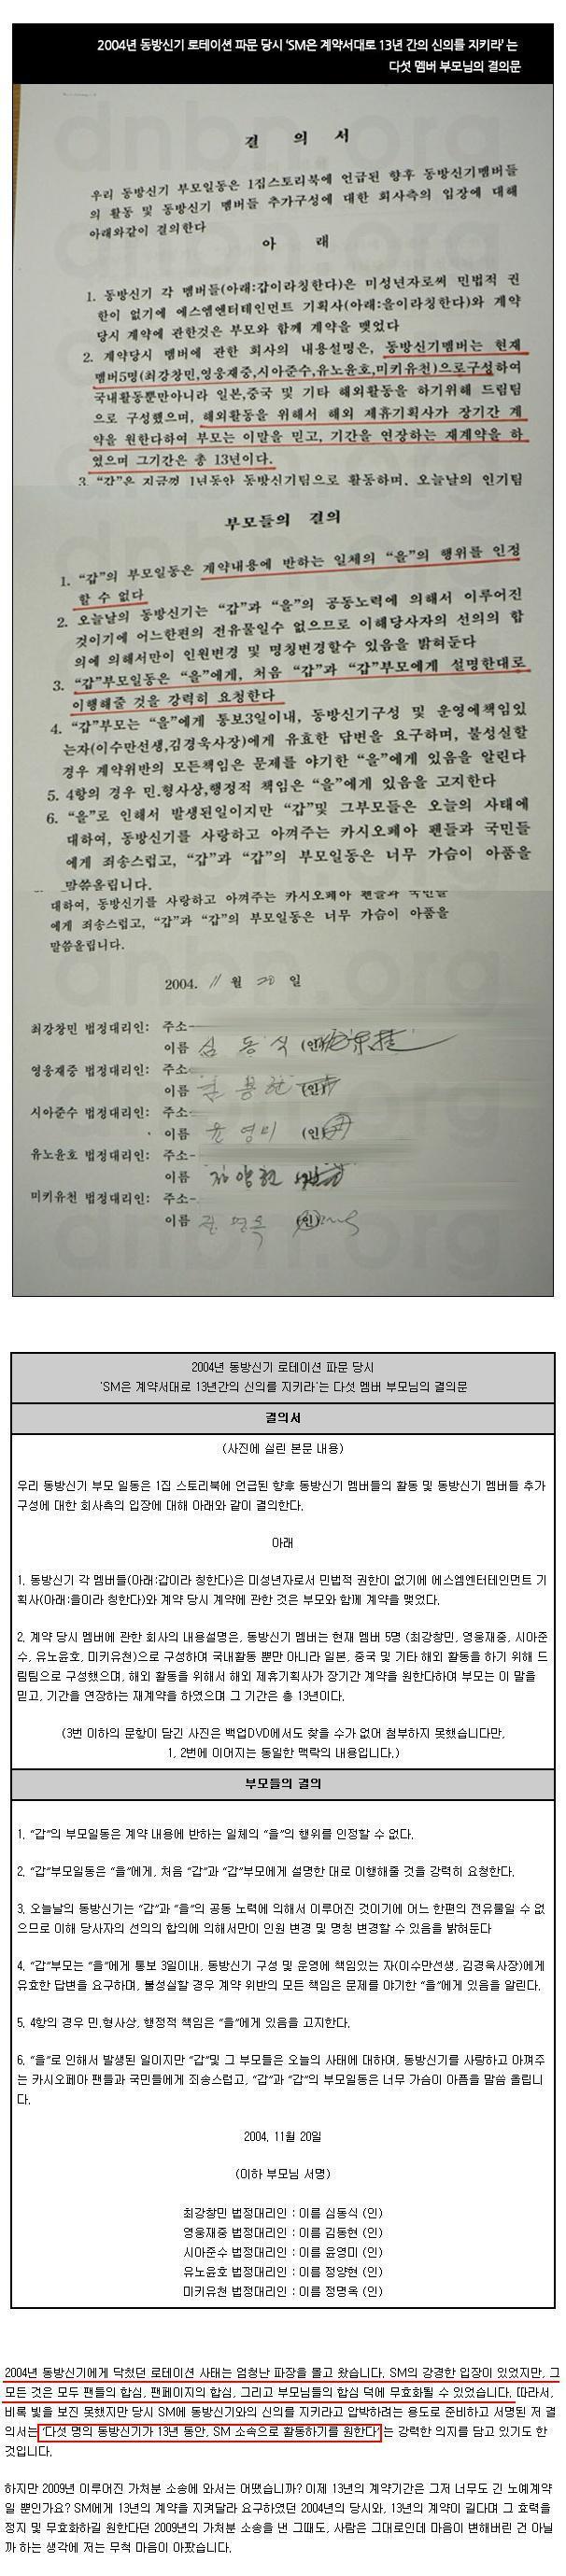 2004년 동방신기 로테이션 파문 당시 ‘SM은 계약서대로 13년 간의 신의를 지키라’ 는
다섯 멤버 부모님의 결의문
결 의 서
우리 동방신기 부모일동은 1집스토리북에 언급된 향후 동방신기멤버들
의 활동 및 동방신기 멤버들 추가구성에 대한 회사측의 입장에 대해
아래와같이 결의한다
아 래
1. 동방신기 각 멤버들(아래:갑이라칭한다)은 미성년자로써 민법적 권
한이 없기에 에스엠엔터테인먼트 기획사(아래:을이라칭한다)와 계약
당시 계약에 관한것은 부모와 함께 계약을 맺었다
2. 계약당시 멤버에 관한 회사의 내용설명은, 동방신기멤버는 현재
멤버5명(최강창민,영웅재중,시아준수,유노윤호,미키유천)으로구성하여
국내활동뿐만아니라 일본,중국 및 기타 해외활동을 하기위해 드림팀
으로 구성했으며, 해외활동을 위해서 해외 제휴기획사가 장기간 계
약을 원한다하여 부모는 이말을 믿고, 기간을 연장하는 재계약을 하
였으며 그기간은 총 13년이다.
3. “갑”은 지금껏 1년동안 동방신기팀으로 활동하며, 오늘날의 인기팀
부모들의 결의
1. “갑”의 부모일동은 계약내용에 반하는 일체의 “을”의 행위를 인정
할 수 없다
2. 오늘날의 동방신기는 “갑”과 “을”의 공동노력에 의해서 이루어진
것이기에 어느한편의 전유물일수 없으므로 이해당사자의 선의의 합
의에 의해서만이 인원변경 및 명칭변경할수 있음을 밝혀둔다
3. “갑”부모일동은 “을”에게, 처음 “갑”과 “갑”부모에게 설명한대로
이행해줄 것을 강력히 요청한다
4. “갑”부모는 “을”에게 통보3일이내, 동방신기구성 및 운영에책임있
는자(이수만선생,김경욱사장)에게 유효한 답변을 요구하며, 불성실할
경우 계약위반의 모든책임은 문제를 야기한 “을”에게 있음을 알린다
5. 4항의 경우 민.형사상,행정적 책임은 “을”에게 있음을 고지한다
6. “을”로 인해서 발생된일이지만 “갑”및 그부모들은 오늘의 사태에
대하여, 동방신기를 사랑하고 아껴주는 카시오페아 팬들과 국민들
에게 죄송스럽고, “갑”과 “갑”의 부모일동은 너무 가슴이 아픔을
말씀올립니다.
대하여, 동방신기를 사랑하고 아껴주는 카시오페아 팬들과 국민들
에게 죄송스럽고, “갑”과 “갑”의 부모일동은 너무 가슴이 아픔을
말씀올립니다.
2004. 11 월 20 일
최강창민 법정대리인: 주소
이름 심 동 식 (인)
영웅재중 법정대리인: 주소
이름 (인)
시아준수 법정대리인: 주소
이름 윤 영 미 (인)
유노윤호 법정대리인: 주소
이름 정 양 현
미키유천 법정대리인: 주소
이름 (인)
2004년 동방신기 로테이션 파문 당시
'SM은 계약서대로 13년간의 신의를 지키라'는 다섯 멤버 부모님의 결의문
결의서
(사진에 실린 본문 내용)
우리 동방신기 부모 일동은 1집 스토리북에 언급된 향후 동방신기 멤버들의 활동 및 동방신기 멤버들 추가
구성에 대한 회사측의 입장에 대해 아래와 같이 결의한다.
아래
1. 동방신기 각 멤버들(아래:갑이라 칭한다)은 미성년자로서 민법적 권한이 없기에 에스엠엔터테인먼트 기
획사(아래:을이라 칭한다)와 계약 당시 계약에 관한 것은 부모와 함께 계약을 맺었다.
2. 계약 당시 멤버에 관한 회사의 내용설명은, 동방신기 멤버는 현재 멤버 5명 (최강창민, 영웅재중, 시아준
수, 유노윤호, 미키유천)으로 구성하여 국내활동 뿐만 아니라 일본, 중국 및 기타 해외 활동을 하기 위해 드
림팀으로 구성했으며, 해외 활동을 위해서 해외 제휴기획사가 장기간 계약을 원한다하여 부모는 이 말을
믿고, 기간을 연장하는 재계약을 하였으며 그 기간은 총 13년이다.
(3번 이하의 문항이 담긴 사진은 백업DVD에서도 찾을 수가 없어 첨부하지 못했습니다만,
1, 2번에 이어지는 동일한 맥락의 내용입니다.)
부모들의 결의
1. “갑”의 부모일동은 계약 내용에 반하는 일체의 “을”의 행위를 인정할 수 없다.
2. “갑”부모일동은 “을”에게, 처음 “갑”과 “갑”부모에게 설명한 대로 이행해줄 것을 강력히 요청한다.
3. 오늘날의 동방신기는 “갑”과 “을”의 공동 노력에 의해서 이루어진 것이기에 어느 한편의 전유물일 수 없
으므로 이해 당사자의 선의의 합의에 의해서만이 인원 변경 및 명칭 변경할 수 있음을 밝혀둔다
4. “갑”부모는 “을”에게 통보 3일이내, 동방신기 구성 및 운영에 책임있는 자(이수만선생, 김경욱사장)에게
유효한 답변을 요구하며, 불성실할 경우 계약 위반의 모든 책임은 문제를 야기한 “을”에게 있음을 알린다.
5. 4항의 경우 민.형사상, 행정적 책임은 “을”에게 있음을 고지한다.
6. “을”로 인해서 발생된 일이지만 “갑”및 그 부모들은 오늘의 사태에 대하여, 동방신기를 사랑하고 아껴주
는 카시오페아 팬들과 국민들에게 죄송스럽고, “갑”과 “갑”의 부모일동은 너무 가슴이 아픔을 말씀 올립니
다.
2004. 11월 20일
(이하 부모님 서명)
최강창민 법정대리인 : 이름 심동식 (인)
영웅재중 법정대리인 : 이름 김동현 (인)
시아준수 법정대리인 : 이름 윤영미 (인)
유노윤호 법정대리인 : 이름 정양현 (인)
미키유천 법정대리인 : 이름 정명옥 (인)
2004년 동방신기에게 닥쳤던 로테이션 사태는 엄청난 파장을 몰고 왔습니다. SM의 강경한 입장이 있었지만, 그
모든 것은 모두 팬들의 합심, 팬페이지의 합심, 그리고 부모님들의 합심 덕에 무효화될 수 있었습니다. 따라서,
비록 빛을 보진 못했지만 당시 SM에 동방신기와의 신의를 지키라고 압박하려는 용도로 준비하고 서명된 저 결
의서는 '다섯 명의 동방신기가 13년 동안, SM 소속으로 활동하기를 원한다'는 강력한 의지를 담고 있기도 한
것입니다.
하지만 2009년 이루어진 가처분 소송에 와서는 어땠습니까? 이제 13년의 계약기간은 그저 너무도 긴 노예계약
일 뿐인가요? SM에게 13년의 계약을 지켜달라 요구하였던 2004년의 당시와, 13년의 계약이 길다며 그 효력을
정지 및 무효화하길 원한다던 2009년의 가처분 소송을 낸 그때도, 사람은 그대로인데 마음이 변해버린 건 아닐
까 하는 생각에 저는 무척 마음이 아팠습니다.